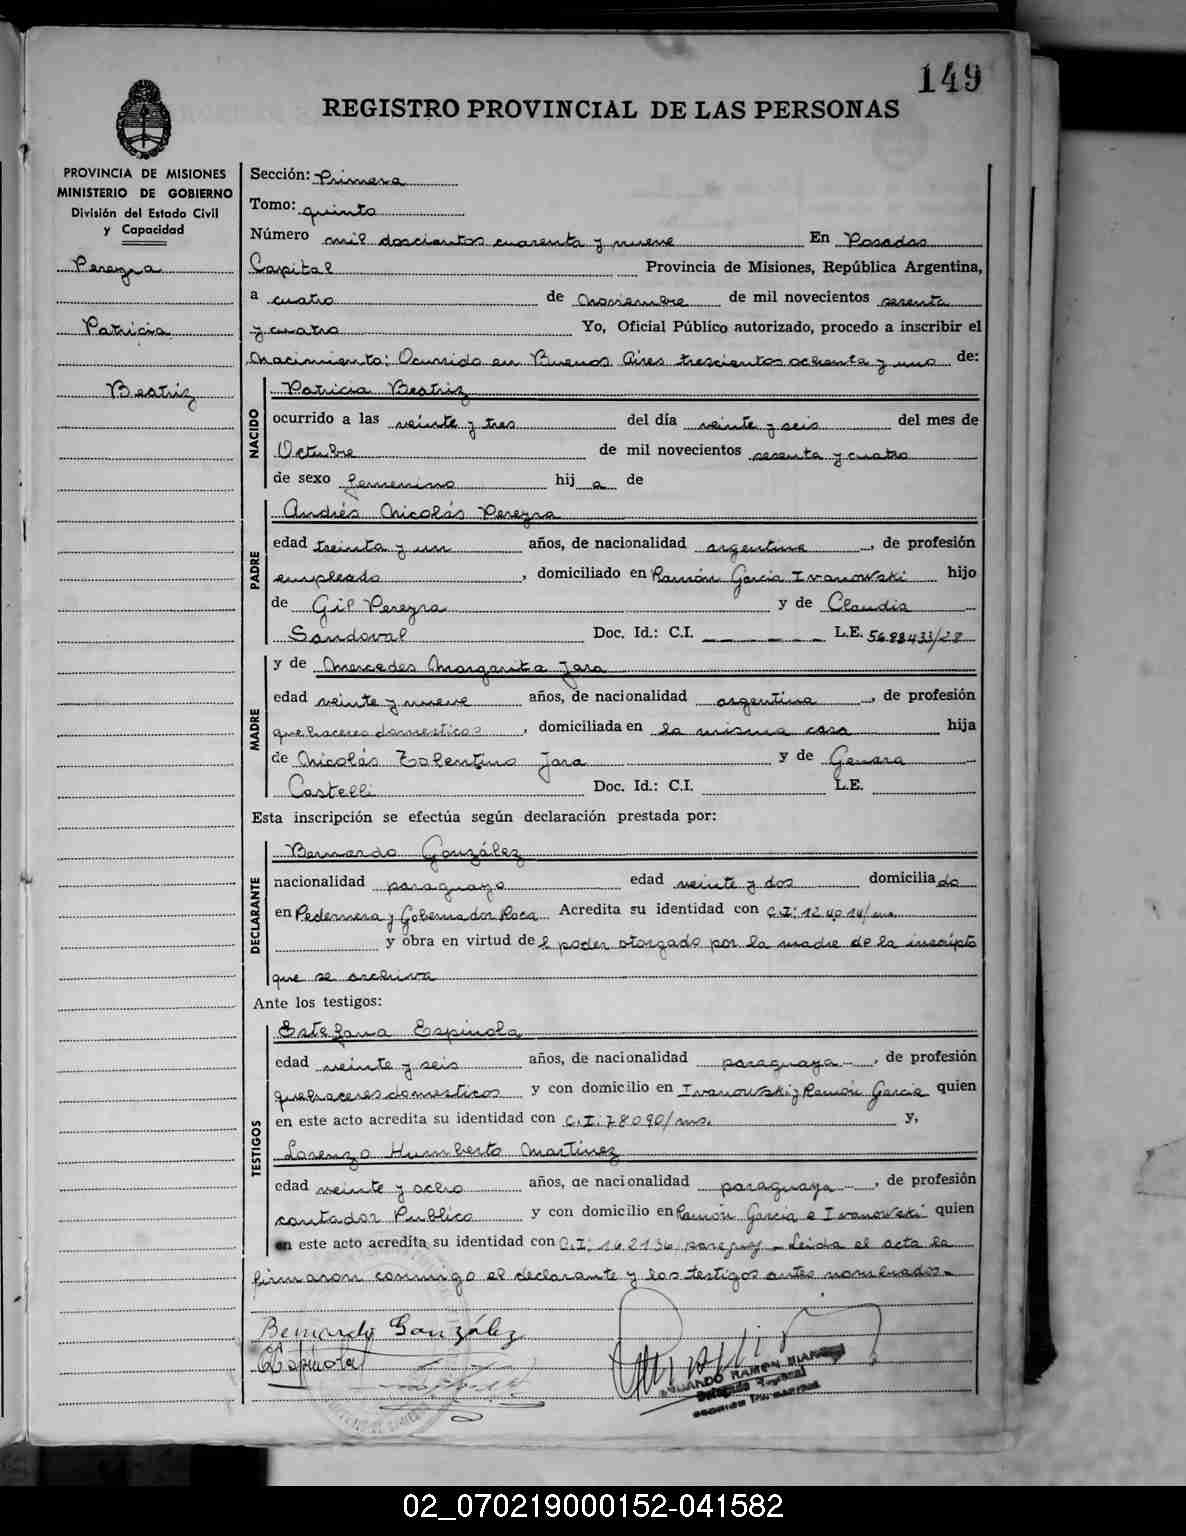 149
REGISTRO PROVINCIAL DE LAS PERSONAS
PROVINCIA DE MISIONES
MINISTERIO DE GOBIERNO
División del Estado Civil
y Capacidad
Pereyra
Patricia
Beatriz
Sección: Primera
Tomo: quinto
Número mil doscientos cuarenta y nueve En Posadas
Capital Provincia de Misiones, República Argentina,
a cuatro de Noviembre de mil novecientos sesenta
y cuatro Yo, Oficial Público autorizado, procedo a inscribir el
Nacimiento: Ocurrido en Buenos Aires trescientos ochenta y uno de:
NACIDO
Patricia Beatriz
ocurrido a las veinte y tres del día veinte y seis del mes de
Octubre de mil novecientos sesenta y cuatro
de sexo femenino hij a de
PADRE
Andrés Nicolás Pereyra
edad treinta y un años, de nacionalidad argentina, de profesión
empleado, domiciliado en Ramón García Ivanowski hijo
de Gil Pereyra y de Claudia
Sandoval Doc. Id.: C.I. — — — — L.E. 5683433/28
MADRE
y de Mercedes Margarita Jara
edad veinte y nueve años, de nacionalidad argentina, de profesión
quehaceres domesticos, domiciliada en la misma casa hija
de Nicolás Tolentino Jara y de Genara
Castelli Doc. Id.: C.I. L.E.
Esta inscripción se efectúa según declaración prestada por:
DECLARANTE
Bernardo González
nacionalidad paraguayo edad veinte y dos domicilia do
en Pedernera y Gobernador Roca Acredita su identidad con C.I: 124014/ms.
y obra en virtud de l poder otorgado por la madre de la inscripta
que se archiva
Ante los testigos:
TESTIGOS
Estefana Espinola
edad veinte y seis años, de nacionalidad paraguaya, de profesión
quehaceres domesticos y con domicilio en Ivanowski y Ramón García quien
en este acto acredita su identidad con C.I. 78090/ms. y,
Lorenzo Humberto Martinez
edad veinte y ocho años, de nacionalidad paraguaya, de profesión
contador Publico y con domicilio en Ramón García e Ivanowski quien
en este acto acredita su identidad con C.I: 162136/ Leida el acta la
firmaron conmigo el declarante y los testigos antes nombrados.-
Bernardo González
Espinola
EDUARDO RAMON
Delegado
02_070219000152-041582